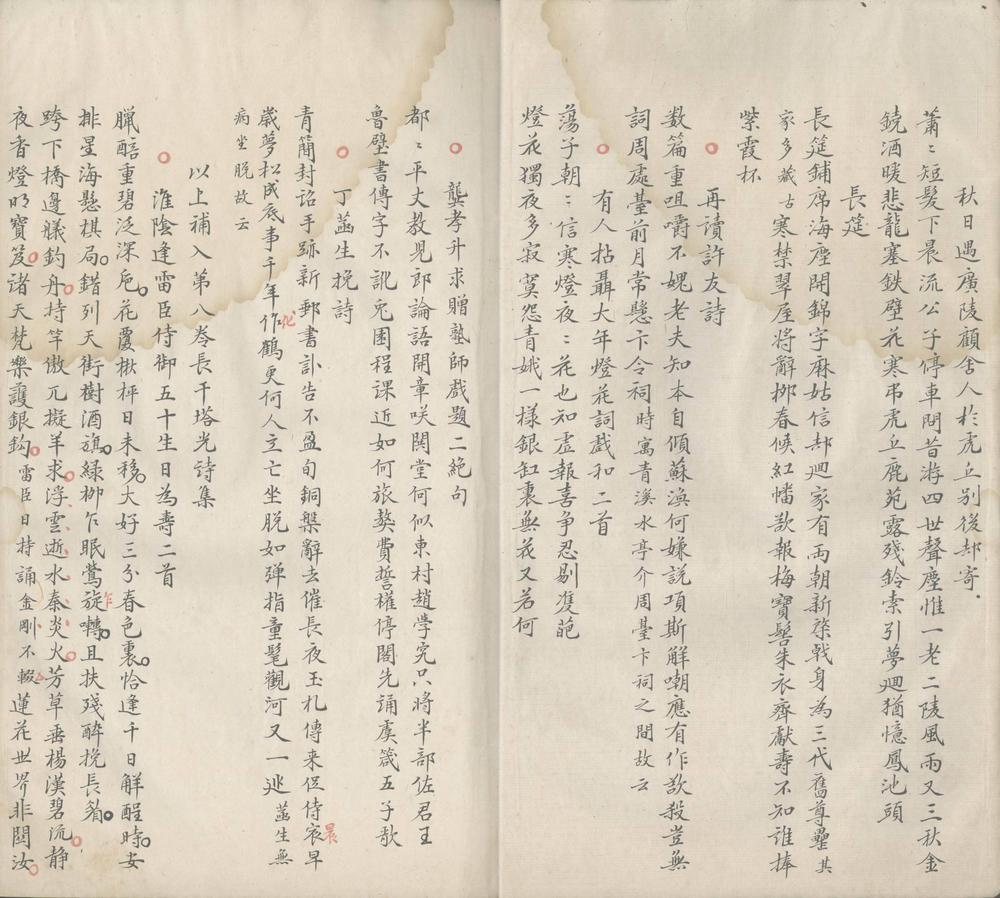 秋日遇廣陵顧舍人於虎丘別後却寄
蕭〻短髮下晨流公子停車問昔游四世聲塵惟一老二陵風雨又三秋金
鐃酒暖悲龍塞鉄壁花寒弔虎丘鹿苑露殘鈴索引夢廻猶憶鳳池頭
長筵
長筵鋪席海塵開錦字麻姑信却廻家有兩朝新棨戟身為三代舊尊罍其
家多藏古寒禁翠崖將辭栁春候紅幡歘報梅寶髻朱衣齊獻壽不知誰捧
紫霞杯
再讀許友詩
数篇重咀嚼不媿老夫知本自傾蘇渙何嫌説項斯解嘲應有作欲殺豈無
詞周處臺前月常懸卞令祠時寓青溪水亭介周臺卞祠之間故云
有人拈聶大年燈花詞戯和二首
蕩子朝〻信寒燈夜〻花也知虛報喜爭忍剔雙葩
燈花獨夜多寂寞怨青娥一様銀缸裏無花又若何
龔孝升求贈塾師戯題二絶句
都〻平丈教兒郎論語開章咲閧堂何似東村趙學究只將半部佐君王
魯壁書傳字不訛兎園程課近如何旅獒費誓權停閣先誦虞箴五子歌
丁菡生挽詩
青簡封詒手跡新郵書訃告不盈旬銅槃辭去催長夜玉札傳来促侍宸晨早
歲夢松成底事千年作化鶴更何人立亡坐脱如彈指童髦觀河又一巡菡生無
病坐脱故云
以上補入第八卷長干塔光詩集
淮陰逢雷臣侍御五十生日為壽二首
臘醅重碧泛深卮花覆楸枰日未移大好三分春色裏恰逢千日解酲時安
排星海懸棋局錯列天街樹酒旗綠栁乍眠鶯旋乍囀且扶殘醉挽長條
跨下橋邊艤釣舟持竿傲兀擬羊求浮雲逝水秦炎火芳草垂楊漢碧流静
夜香燈明寶笈諸天梵樂護銀鈎雷臣日持誦金剛不輟蓮花世界非閻汝